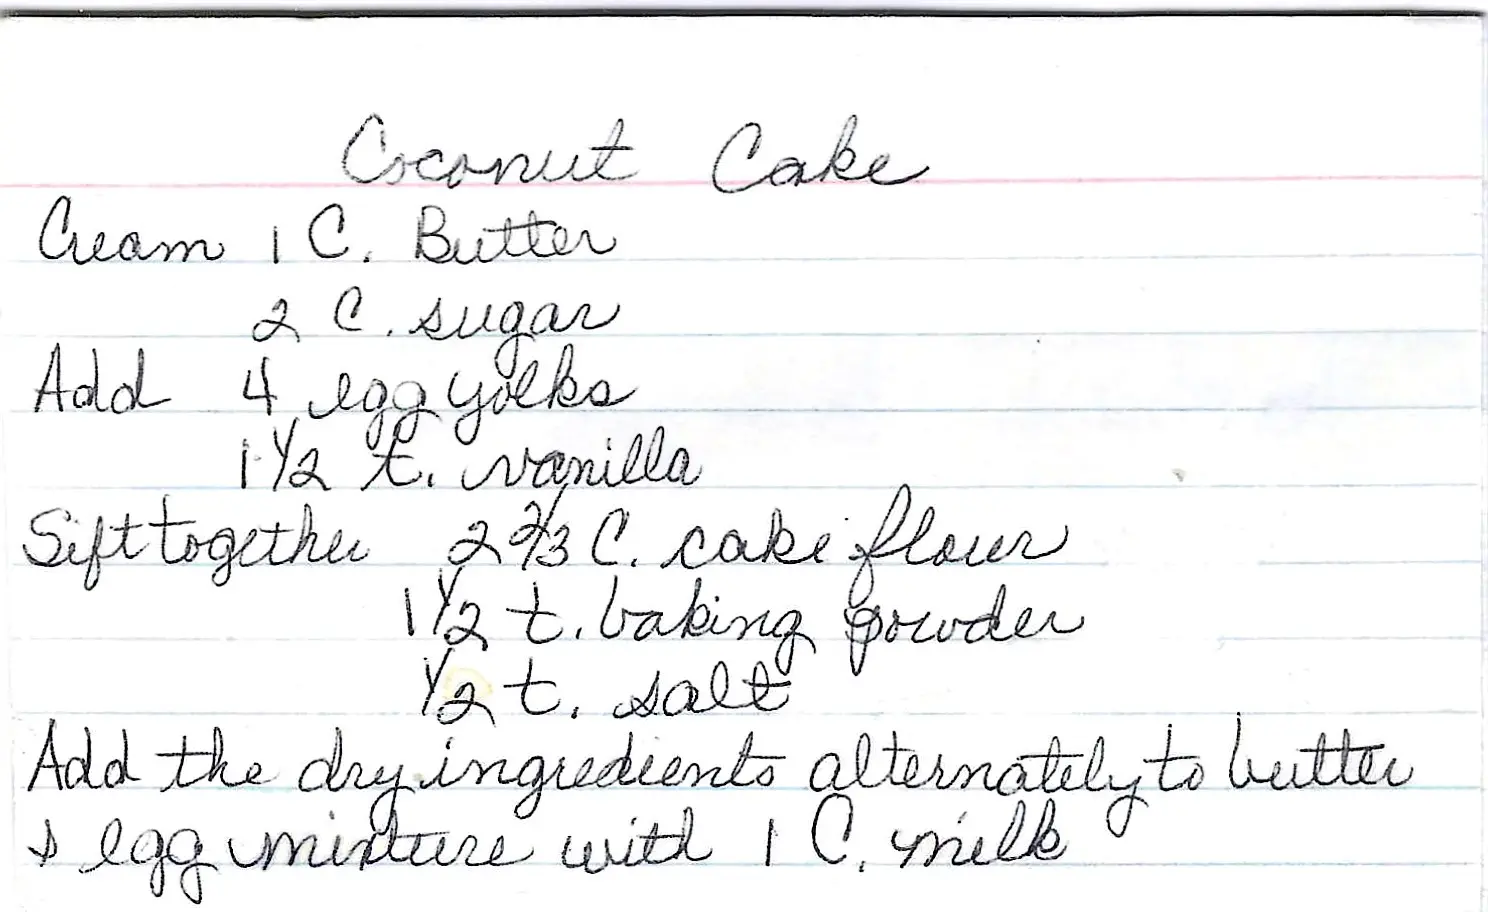 Coconut Cake
Cream 1 C. Butter
2 C. sugar
Add 4 egg yolks
1 1/2 t. vanilla
Sift together 2 2/3 C. cake flour
1 1/2 t. baking powder
1/2 t. salt
Add the dry ingredients alternately to butter
& egg mixture with 1 C. milk